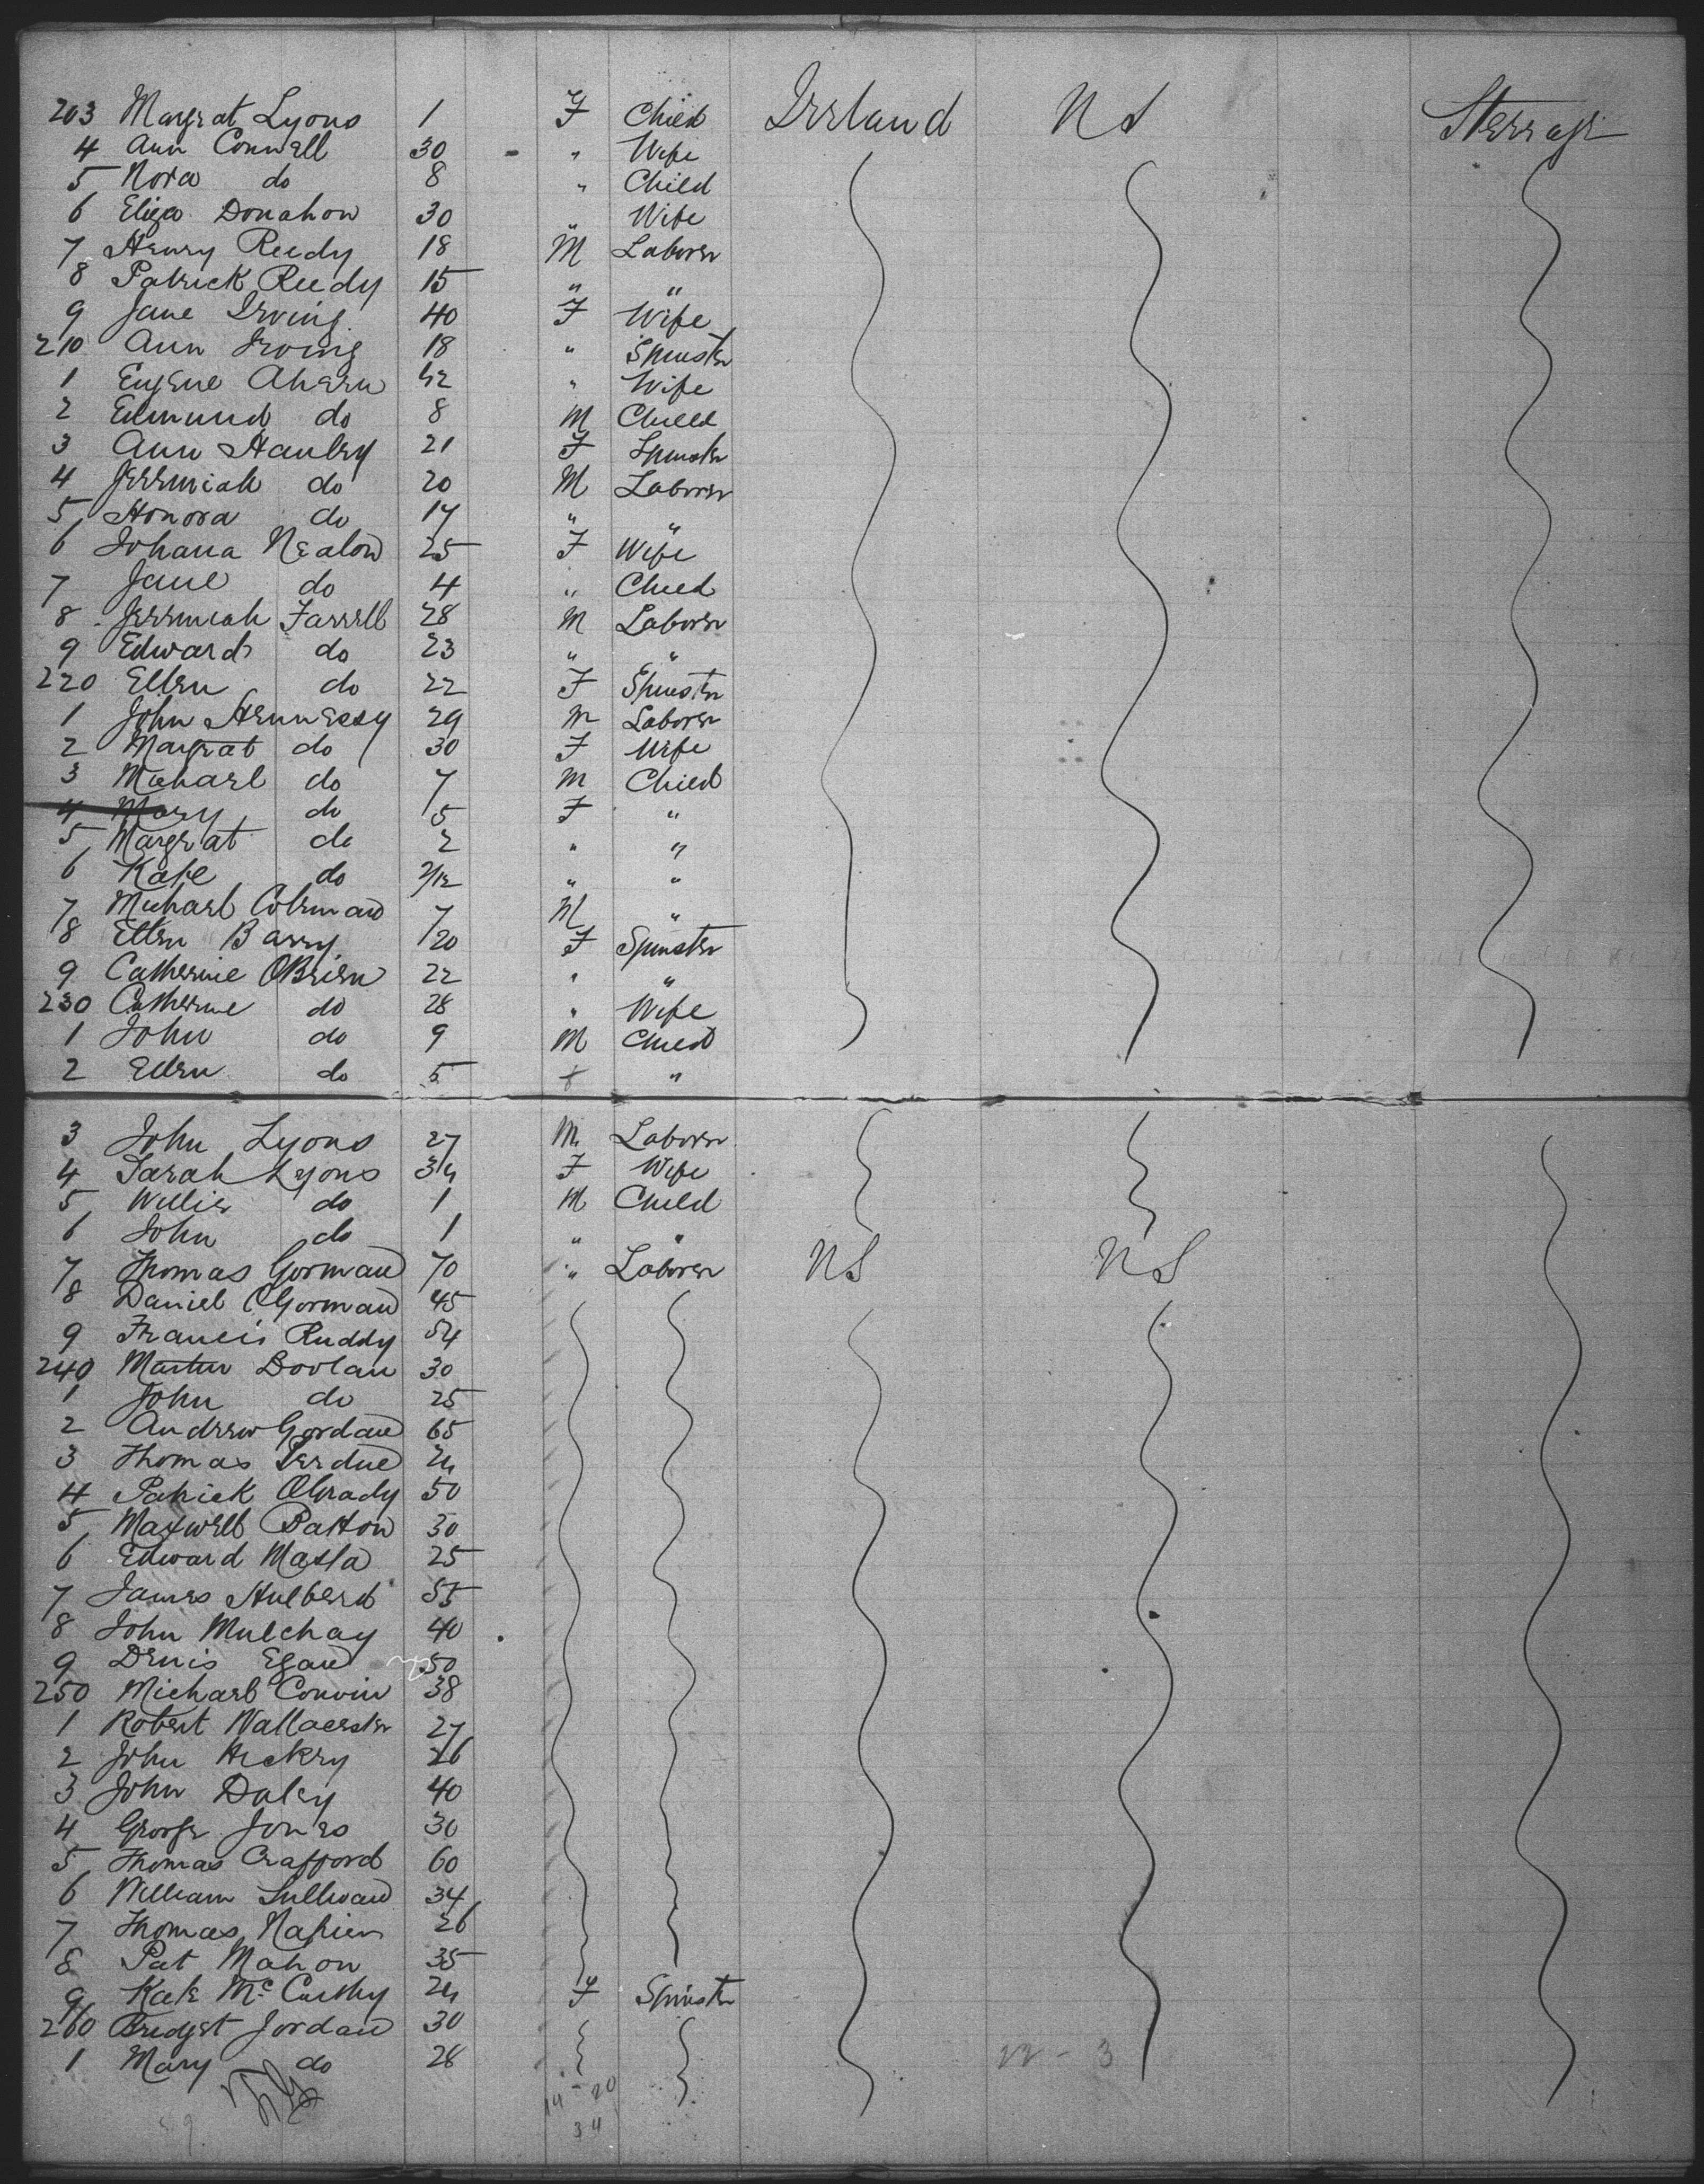 203 Margrat Lyons 1 F Child Irrland U S Sterrage
4 Ann Connell 30 - " Wife
5 Nora do 8 " Child
6 Eliza Donahow 30 " Wife
7 Henry Reedy 18 M Laborer
8 Patrick Reedy 15 " "
9 Jane Irving 40 F Wife
210 Ann Irving 18 " Spinster
1 Eugene Ahern 42 " Wife
2 Edmund do 8 M Child
3 Ann Hanley 21 F Spinster
4 Jerrmiah do 20 M Laborer
5 Honora do 17 " "
6 Johana Nealon 25 F Wife
7 Jane do 4 " Child
8 Jerrmiah Farrell 28 M Laborer
9 Edward do 23 " "
220 Ellen do 22 F Spinster
1 John Hennessy 29 M Laborer
2 Margrat do 30 F Wife
3 Michael do 7 M Child
4 Mary do 5 F "
5 Margrat do 2 " "
6 Kate do /12 " "
7 Michael Coleman 7 M "
8 Ellen Barry 20 F Spinster
9 Catherine OBrien 22 " "
230 Catherine do 28 " Wife
1 John do 9 M Child
2 Ellen do 5 F "
3 John Lyons 27 M Laborer
4 Sarah Lyons 34 F Wife
5 Willie do 1 M Child
6 John do 1 " "
7 Thomas Gorman 70 " Laborer U S U S
8 Daniel OGorman 45
9 Francis Ruddy 54
240 Martin Doolan 30
1 John do 25
2 Andrew Gordan 65
3 Thomas Perdue 24
4 Patrick OGrady 50
5 Maxwell Patton 30
6 Edward Masla 25
7 James Hulberd 55
8 John Mulchay 40
9 Denis Egan 50
250 Michael Convin 38
1 Robert Wallacester 27
2 John Hickey 26
3 John Daley 40
4 George Jones 30
5 Thomas Crafford 60
6 William Sullivan 34
7 Thomas Napier 26
8 Pat Mahon 35
9 Kate McCarthy 24 F Spinster
260 Bridget Jordan 30
1 Mary do 28
22 - 3
14 - 20
34